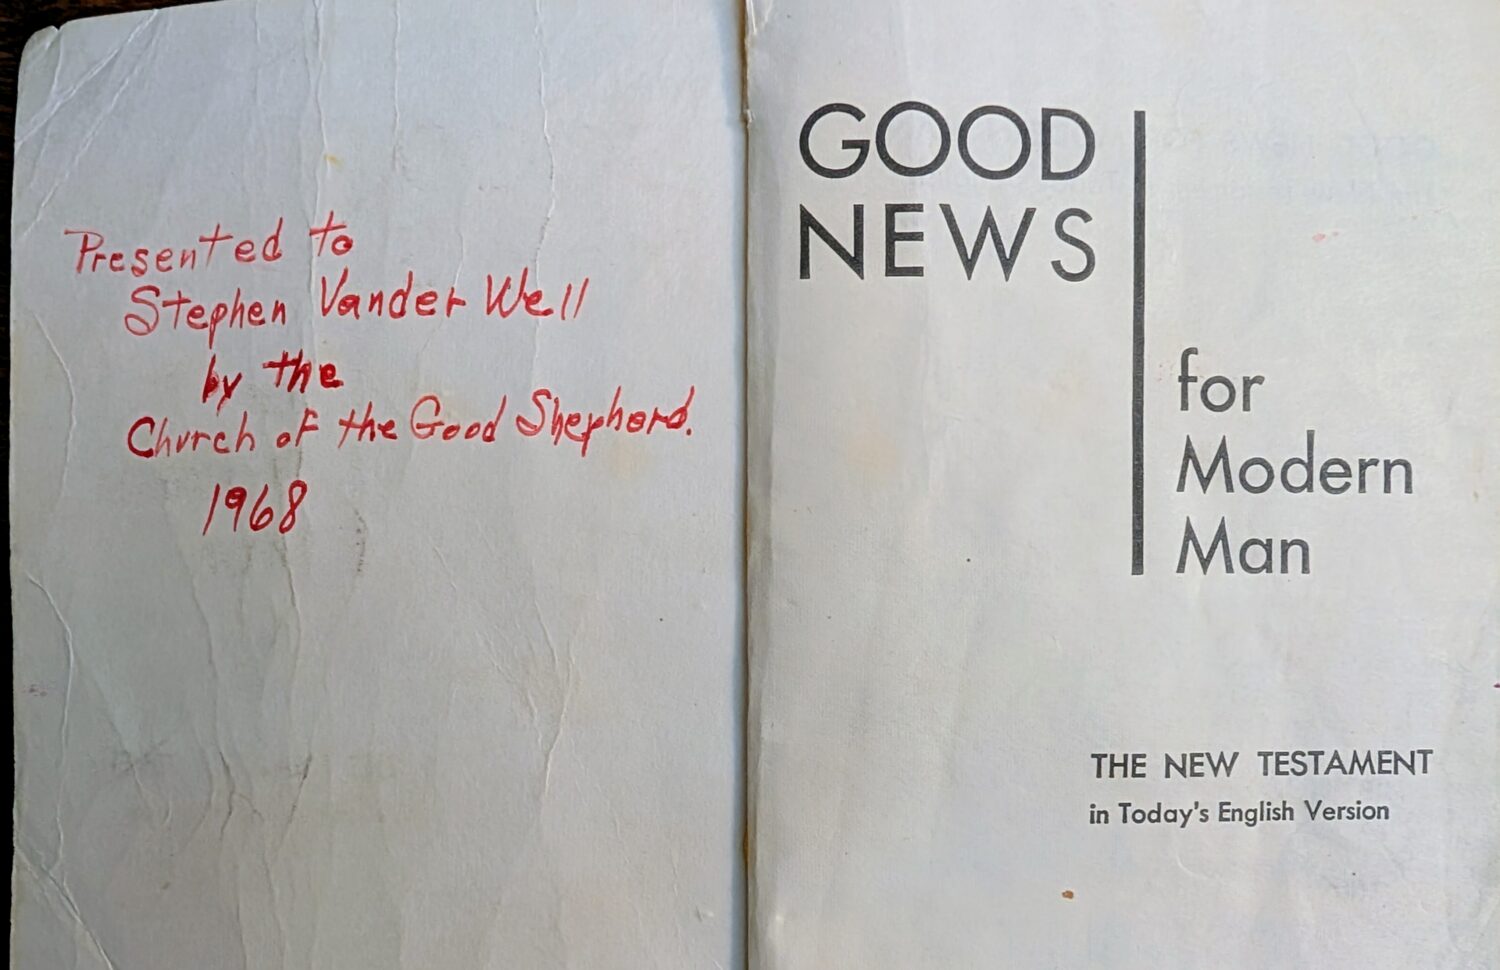 Presented to
Stephen Vander Well
by the
Church of the Good Shepherd.
1968
GOOD
NEWS
for
Modern
Man
THE NEW TESTAMENT
in Today's English Version